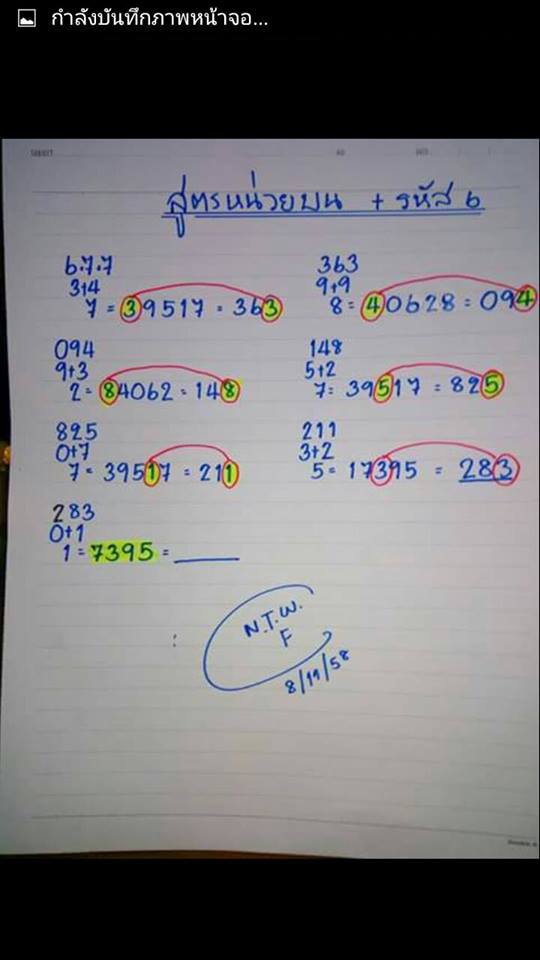 กำลังบันทึกภาพหน้าจอ...
สูตรหน่วยบน + รหัส 6
6.7.7
3+4
7 = 39517 = 363
363
9+9
8 = 40628 = 094
094
9+3
2 = 84062 = 148
148
5+2
7 = 39517 = 825
825
0+7
7 = 39517 = 211
211
3+2
5 = 17395 = 283
283
0+1
1 = 7395 = ____
N.T.W.
F
8/11/58